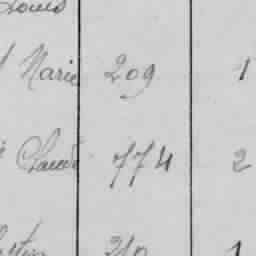 Louis
Marie 209 1
Claude 774 2
210 1